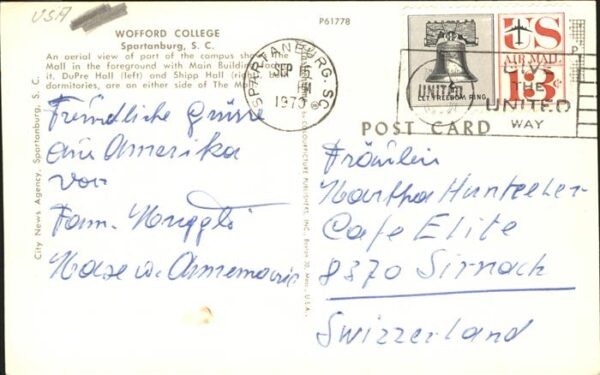 USA
WOFFORD COLLEGE
Spartanburg, S. C.
P61778
An aerial view of part of the campus shows The
Mall in the foreground with Main Building facing
it. DuPre Hall (left) and Shipp Hall (right)
dormitories, are on either side of The Mall.
SPARTANBURG, S.C.
SEP 15
PM
1973
LET FREEDOM RING
US
AIR MAIL
13c
UNITED
THE
UNITED
WAY
POST CARD
City News Agency, Spartanburg, S. C.
COLOURPICTURE PUBLISHERS, INC., Boston 30, Mass., U.S.A.
Freundliche Grüsse
aus Amerika
von
Fam. Muggli
Fräulein
Martha
Cafe Elite
8370 Sirnach
Switzerland